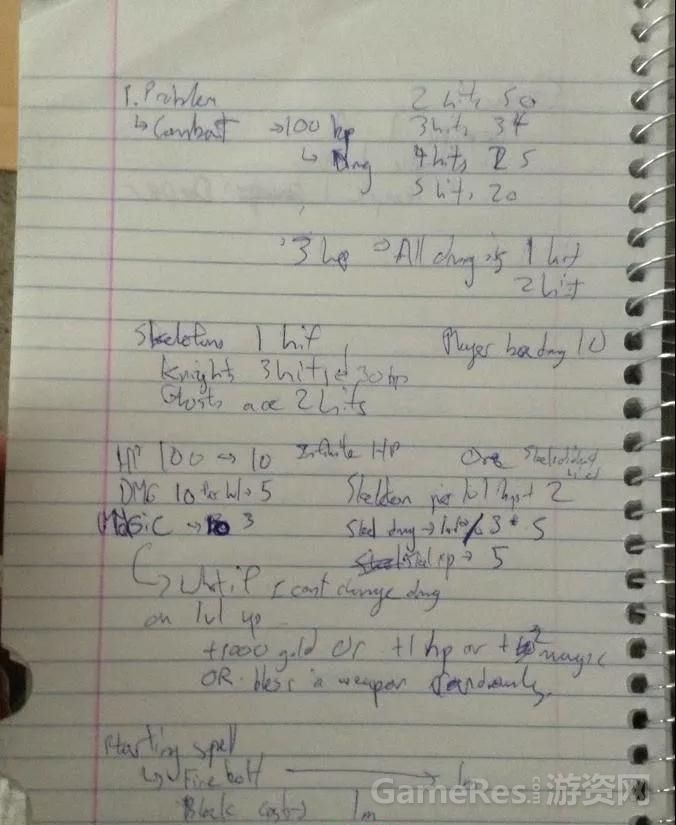 1. Problem
2 hits 50
↳ Combat → 100 hp
3 hits 34
↳ Dmg
4 hits 25
5 hits 20
3 hp → All dmg is 1 hit
2 hit
Skeletons 1 hit
Player base dmg 10
Knights 3 hits 30 hp
Ghosts are 2 hits
HP 100 → 10 Infinite HP
DMG 10 Per lvl → 5
Skeleton per lvl hp + 2
Magic → 3
Skel dmg → 3 * 5
Skel xp → 5
↳ What if I cant change dmg
on lvl up
+1000 gold or +1 hp or + 2 magic
OR bless a weapon randomly
Starting spell
↳ Fire bolt → 1m
Block cast → 1m
GameRes.com 游资网